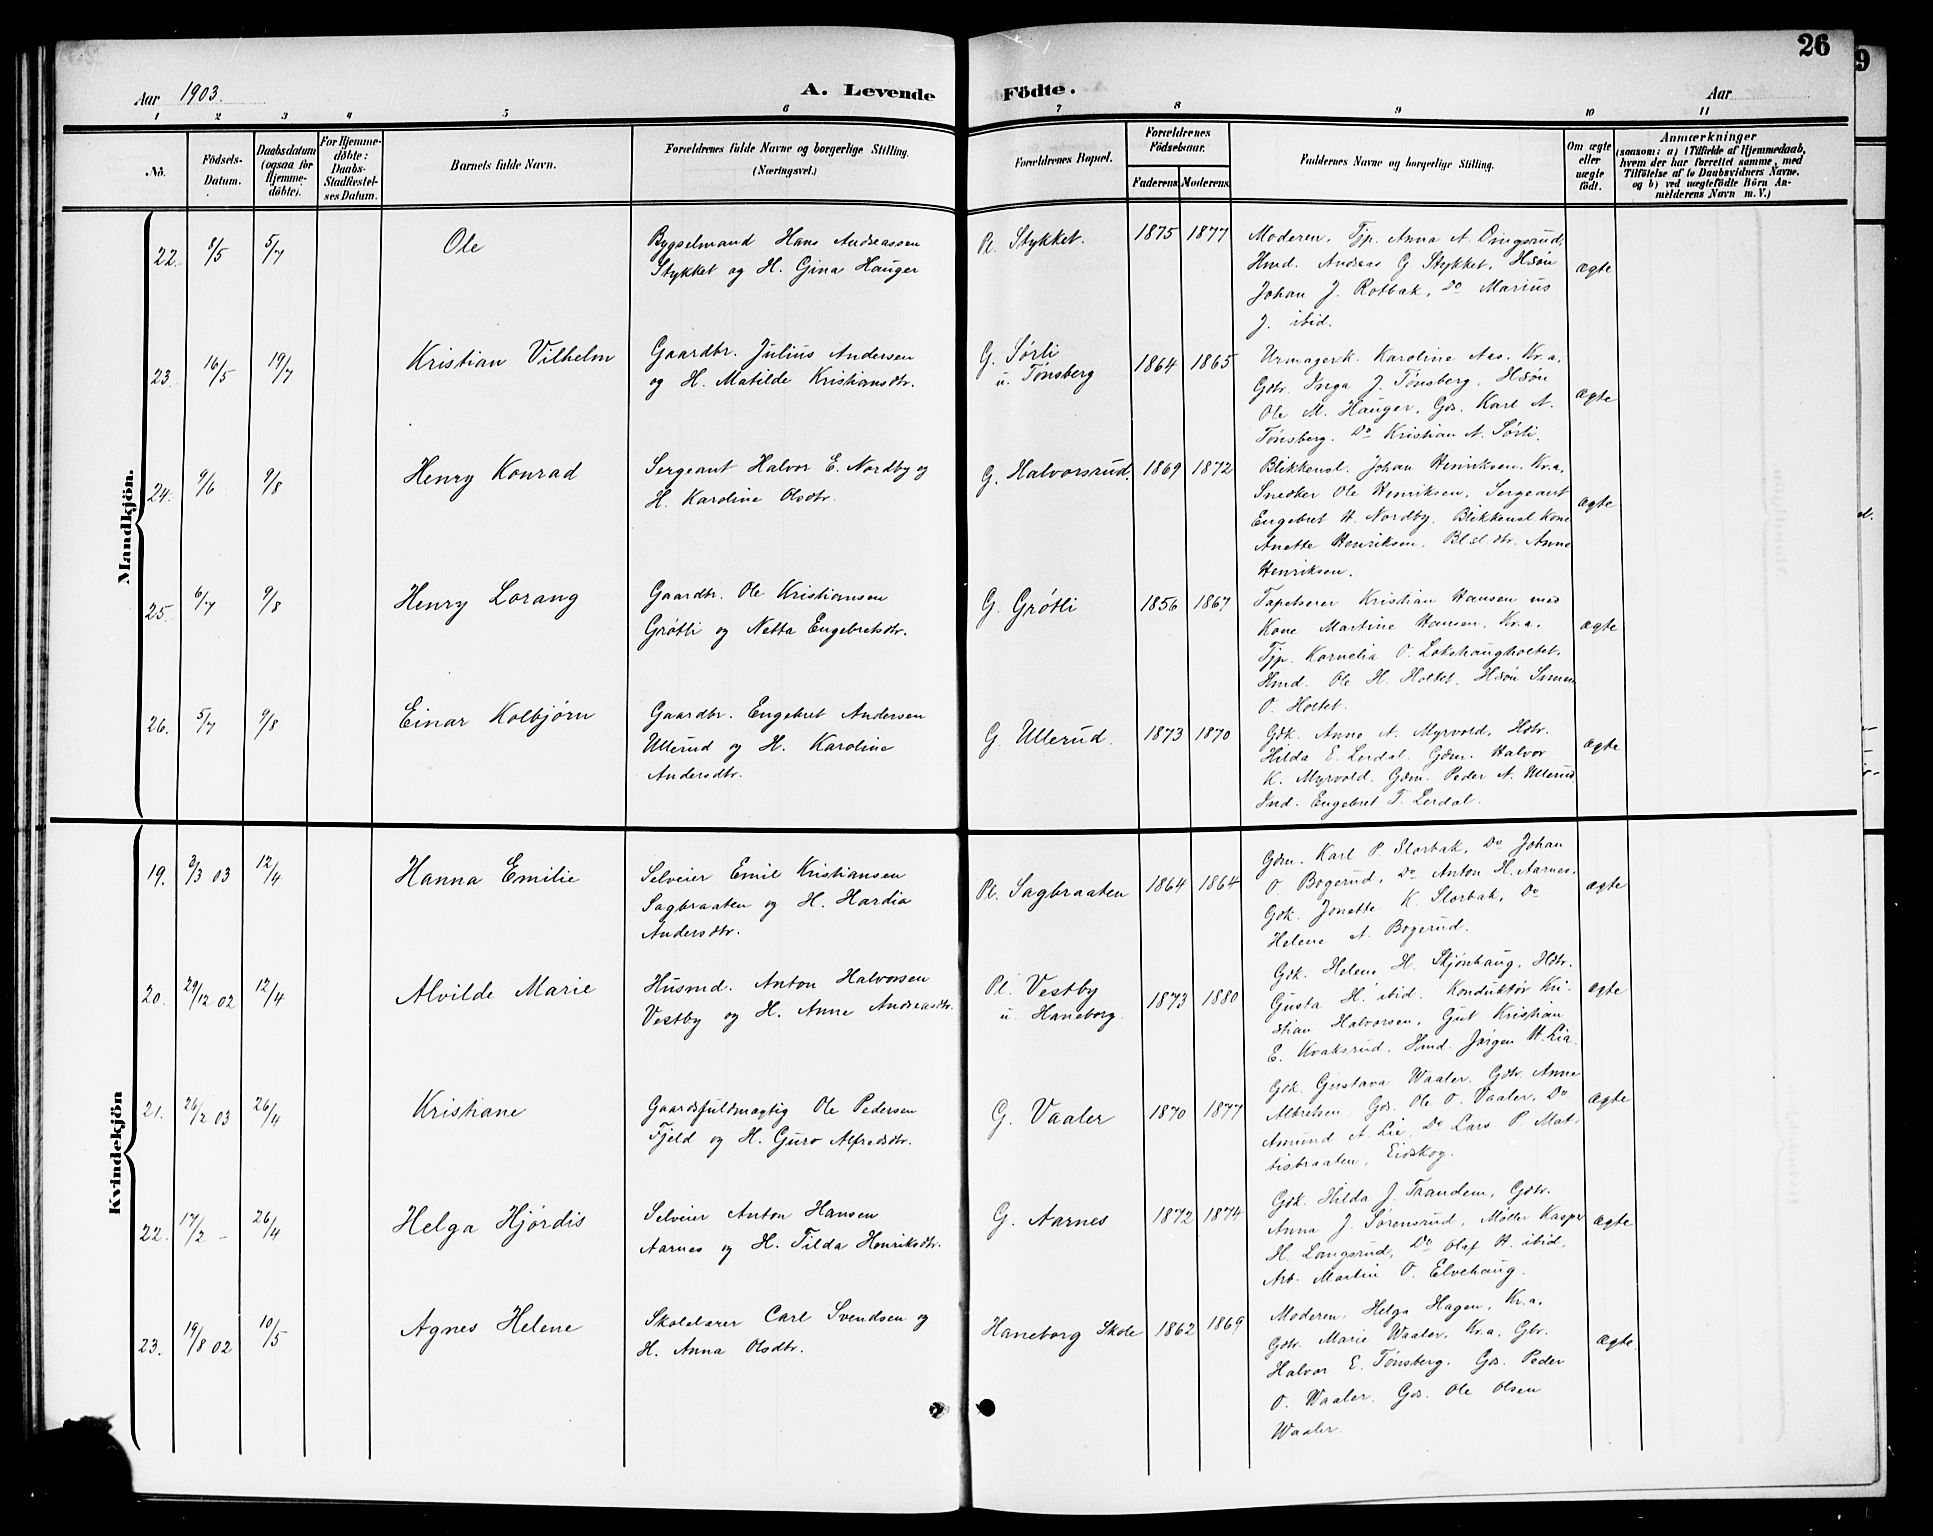 26
9
Aar 1903.
A. Levende Födte.
Aar
1 2 3 4 5 6 7 8 9 10 11
No.
Födsels-
Datum.
Daabsdatum
(ogsaa for
Hjemme-
döbte).
For Hjemme-
döbte:
Daabs-
Stadfæstel-
ses Datum.
Barnets fulde Navn.
Forældrenes fulde Navne og borgerlige Stilling.
(Næringsvei.)
Forældrenes Bopæl.
Forældrenes
Födselsaar.
Faderens
Moderens
Faddernes Navne og borgerlige Stilling.
Om ægte
eller
uægte
födt.
Anmærkninger
(saasom: a) i Tilfælde af Hjemmedaab,
hvem der har forrettet samme, med
Tilföielse af to Daabsvidners Navne,
og b) ved uægtefödte Börn An-
melderens Navn m. V.)
Mandkjön.
22. 8/5 5/7 Ole
Bygselmand Hans Andreassen
Stykket og H. Gina Hauger
Pl. Stykket. 1875 1877
Moderen, Tjp. Anna A. Dingsrud,
Hmd. Andreas G Stykket, Hsøn
Johan J. Rotbak, Do Marius
J. ibid.
ægte
23. 16/5 19/7 Kristian Vilhelm
Gaardbr. Julius Andersen
og H. Matilde Kristiansdtr.
G. Sørli
u. Tønsberg
1864 1865
Urmagerk. Karoline Aas, Kr.a,
Gdtr. Inga J. Tønsberg, Hsøn
Ole M. Hauger, Gds. Karl A.
Tønsberg. Do Kristian A. Sørli.
ægte
24. 9/6 9/8 Henry Konrad
Sergeant Halvor E. Nordby og
H. Karoline Olsdtr.
G. Halvorsrud. 1869 1872
Blikkensl. Johan Henriksen, Kr.a,
Snedker Ole Henriksen, Sergeant
Engebret H. Nordby. Blikkensl. Kone
Anette Henriksen, Bl.sl.dtr. Anna
Henriksen.
ægte
25. 6/7 9/8 Henry Lorang
Gaardbr. Ole Kristiansen
Grøtli og Netta Engebretsdtr.
G. Grøtli 1856 1867
Tapetserer Kristian Hansen med
Kone Martine Hansen, Kr.a,
Tjp. Kornelia O. Lokshaugholtet,
Hmd. Ole H. Holtet, Hsøn Simen
O. Holtet.
ægte
26. 5/7 9/8 Einar Kolbjørn
Gaardbr. Engebret Andersen
Ullerud og H. Karoline
Andersdtr.
G. Ullerud. 1873 1870
Gdk. Anne A. Myrvold, Hdtr.
Hilda E. Lerdal. Gdm. Halvor
K. Myrvold. Gdm. Peder A. Ullerud
Ind. Engebret T. Lerdal.
ægte
Kvindekjön
19. 3/3 03 12/4 Hanna Emilie
Selveier Emil Kristiansen
Sagbraaten og H. Hardia
Andersdtr.
Pl. Sagbraaten 1864 1864
Gdm. Karl P. Slorbak, Do Johan
O. Bogerud, Do Anton H. Aarnes,
Gdk. Jonette K. Slorbak, Do
Helene A. Bogerud.
ægte
20. 29/12 02 12/4 Alvilde Marie
Husmd. Anton Halvorsen
Vestby og H. Anne Andreasdtr.
Pl. Vestby
u. Haneborg.
1873 1880
Gdk. Helene H. Skjønhaug, Hdtr.
Gusta H. ibid. Konduktør Kri-
stian Halvorsen, Gut Kristian
E. Kvaksrud, Hmd. Jørgen H. Lia.
ægte
21. 26/2 03 26/4 Kristiane
Gaardsfuldmægtig Ole Pedersen
Fjeld og H. Guro Alfredsdtr.
G. Vaaler 1870 1877
Gdk. Gustava Waaler. Gdtr. Anne
Albretsen, Gds. Ole O. Vaaler, Do
Amund A. Lie, Do Lars P. Mat-
tisbraaten, Eidskog.
ægte
22. 17/2 – 26/4 Helga Hjørdis
Selveier Anton Hansen
Aarnes og H. Tilda Henriksdtr.
G. Aarnes 1872 1874
Gdk. Hilda J. Trandem, Gdtr.
Anna J. Sørensrud, Møller Kasper
H. Langsrud, Do Olaf H. ibid,
Arb. Martin O. Elvehaug.
ægte
23. 19/8 02 10/5 Agnes Helene
Skolelærer Carl Svendsen og
H. Anna Olsdtr.
Haneborg Skole 1862 1869
Moderen, Helga Hagen, Kr.a,
Gdtr. Marie Waaler, Kr.a, Gbr.
Halvor E. Tønsberg. Gds. Peder
O. Waaler, Gds. Ole Olsen
Waaler.
ægte.